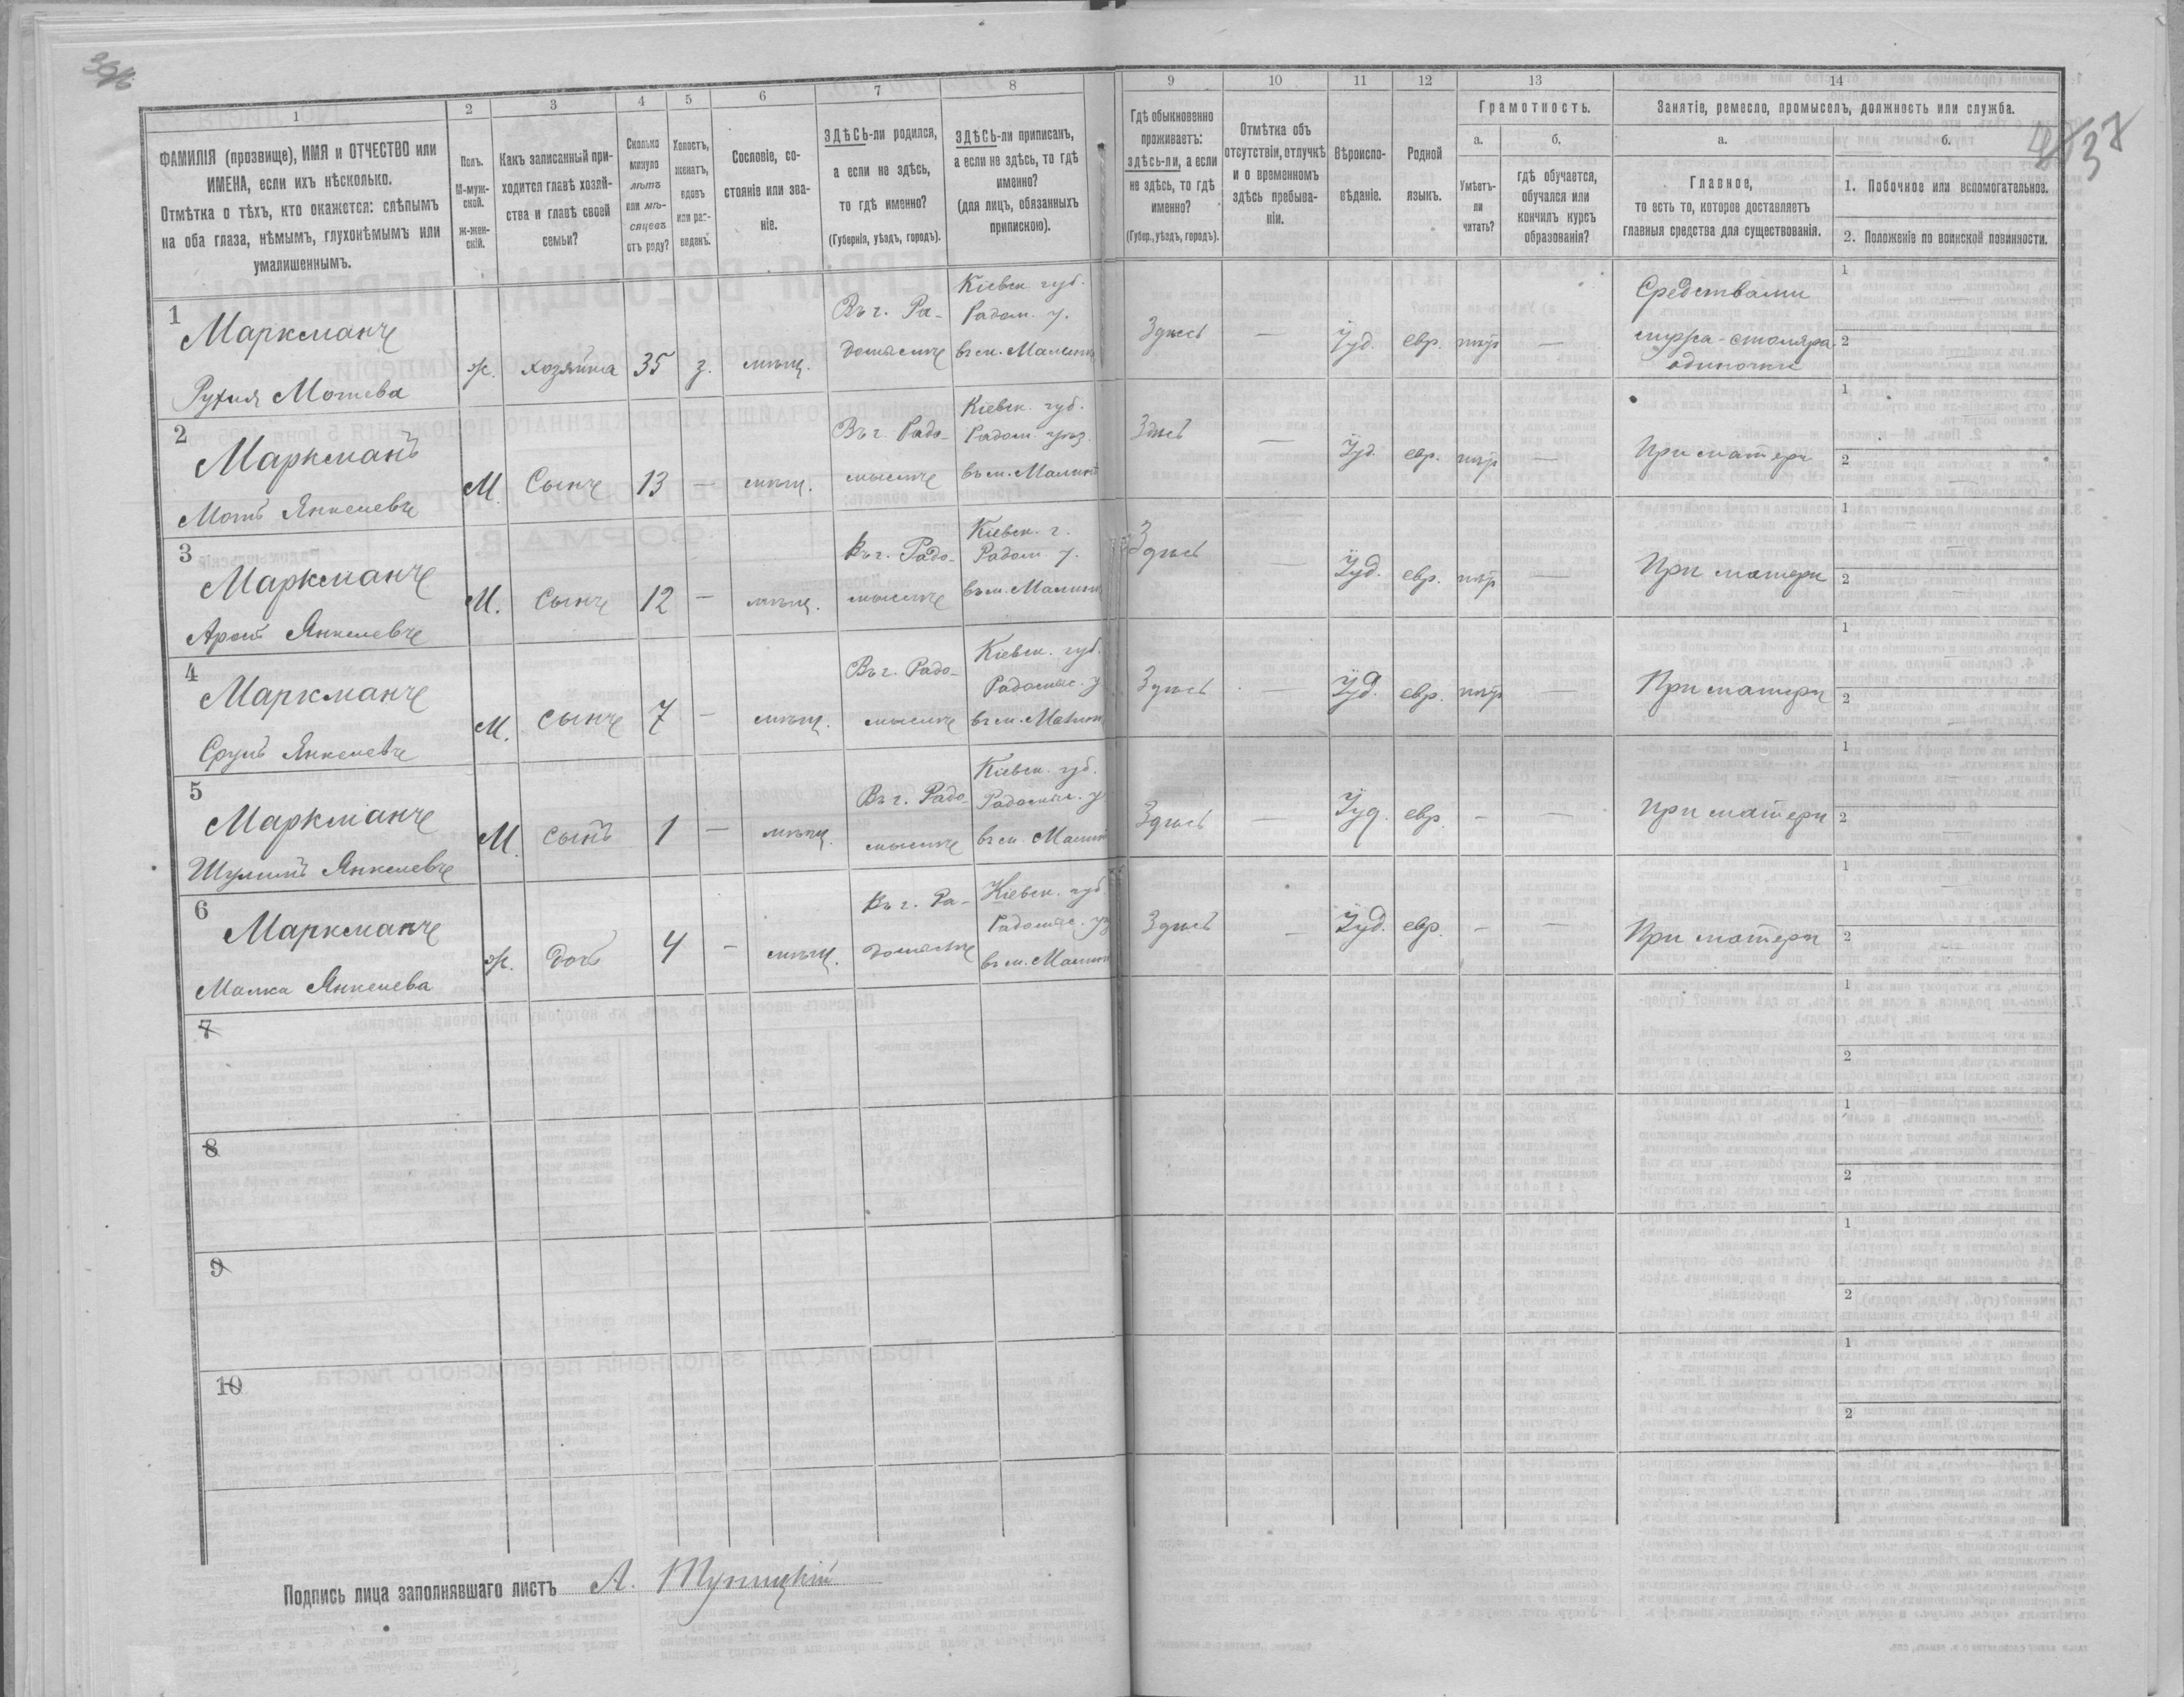 36/б
37
1
2
3
4
5
6
7
8
9
10
11
12
13
14
ФАМИЛІЯ (прозвище), ИМЯ и ОТЧЕСТВО или
ИМЕНА, если ихъ нѣсколько.
Отмѣтка о тѣхъ, кто окажется: слѣпымъ
на оба глаза, нѣмымъ, глухонѣмымъ или
умалишеннымъ.
Полъ.
М-муж-
ской.
ж-жен-
скій.
Какъ записанный при-
ходится главѣ хозяй-
ства и главѣ своей
семьи?
Сколько
минуло
лѣтъ
или мѣ-
сяцевъ
отъ роду?
Холостъ,
женатъ,
вдовъ
или раз-
веденъ.
Сословіе, со-
стояніе или зва-
ніе.
ЗДѢСЬ-ли родился,
а если не здѣсь,
то гдѣ именно?
(Губернія, уѣздъ, городъ).
ЗДѢСЬ-ли приписанъ,
а если не здѣсь, то гдѣ
именно?
(для лицъ, обязанныхъ
припискою).
Гдѣ обыкновенно
проживаетъ:
здѣсь-ли, а если
не здѣсь, то гдѣ
именно?
(Губер., уѣздъ, городъ).
Отмѣтка объ
отсутствіи, отлучкѣ
и о временномъ
здѣсь пребыва-
ніи.
Вѣроиспо-
вѣданіе.
Родной
языкъ.
Грамотность.
а.
Умѣетъ-
ли
читать?
б.
гдѣ обучается,
обучался или
кончилъ курсъ
образованія?
Занятіе, ремесло, промыселъ, должность или служба.
а.
Главное,
то есть то, которое доставляетъ
главныя средства для существованія.
б.
1. Побочное или вспомогательное.
2. Положеніе по воинской повинности.
1
Маркманъ
Рухля Мотева
ж.
хозяйка
35
з.
мѣщ.
Въ г. Ра-
домыслѣ
Кіевск. губ.
Радом. у.
въ м. Малинѣ
Здѣсь
—
Іуд.
евр.
—
Средствами
мужа-столяра
одиночки
1
2
2
Маркманъ
Мотъ Янкелевъ
М.
Сынъ
13
—
мѣщ.
Въ г. Радо-
мыслѣ
Кіевск. губ.
Радом. уѣз.
въ м. Малинѣ
Здѣсь
—
Іуд.
евр.
—
При матери
1
2
3
Маркманъ
Аронъ Янкелевъ
М.
Сынъ
12
—
мѣщ.
Въ г. Радо-
мыслѣ
Кіевск. г.
Радом. у.
въ м. Малинѣ
Здѣсь
—
Іуд.
евр.
—
При матери
1
2
4
Маркманъ
Сруль Янкелевъ
М.
сынъ
7
—
мѣщ.
Въ г. Радо-
мыслѣ
Кіевск. губ.
Радомыс. у
въ м. Малинѣ
Здѣсь
—
Іуд.
евр.
—
При матери
1
2
5
Маркманъ
Шулимъ Янкелевъ
М.
сынъ
1
—
мѣщ.
Въ г. Радо-
мыслѣ
Кіевск. губ.
Радомыс. у
въ м. Малинѣ
Здѣсь
—
Іуд.
евр.
-
—
При матери
1
2
6
Маркманъ
Малка Янкелева
ж.
дочь
4
-
мѣщ.
Въ г. Ра-
домыслѣ
Кіевск. губ
Радомыс. уз
въ м. Малинѣ
Здѣсь
—
Іуд.
евр.
-
—
При матери
1
2
7
1
2
8
1
2
9
1
2
10
1
2
Подпись лица заполнявшаго листъ А. Тупицкій